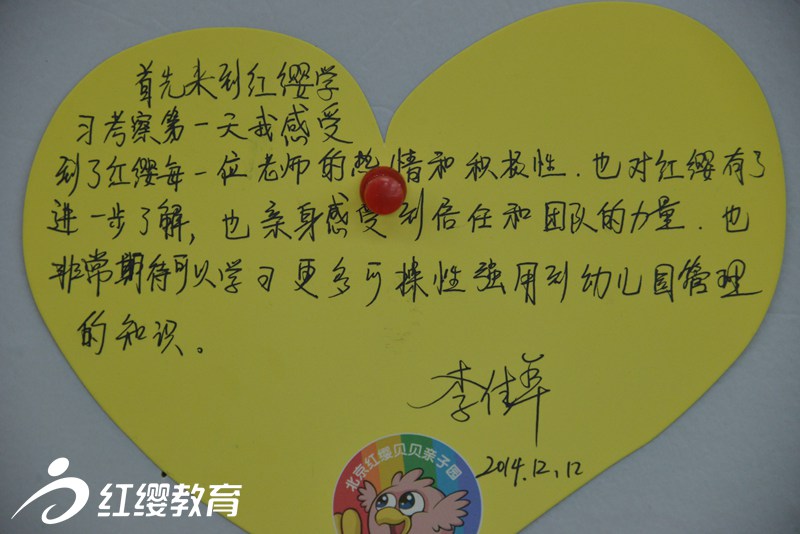 首先来到红缨学
习考察第一天我感受
到了红缨每一位老师的热情和积极性.也对红缨有了
进一步了解,也亲身感受到信任和团队的力量.也
非常期待可以学习更多可操性强用到幼儿园管理
的知识。
李佳苹
2014.12.12
北京红缨贝贝亲子园
红缨教育